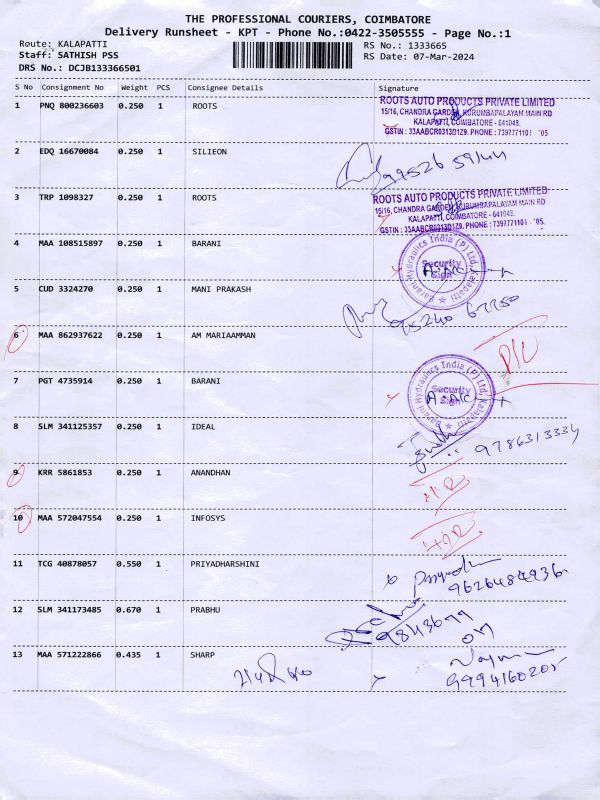 THE PROFESSIONAL COURIERS, COIMBATORE
Delivery Runsheet - KPT - Phone No.:0422-3505555 - Page No.:1
Route: KALAPATTI
RS No.: 1333665
Staff: SATHISH PSS
RS Date: 07-Mar-2024
DRS No.: DCJB133366501
S No Consignment No Weight PCS Consignee Details Signature
1 PNQ 800236603 0.250 1 ROOTS
ROOTS AUTO PRODUCTS PRIVATE LIMITED
15/16, CHANDRA GARDEN, KURUMBAPALAYAM MAIN RD
KALAPATTI, COIMBATORE - 641048.
GSTIN : 33AABCR0313D1Z9. PHONE : 7397771101 - '05
2 EDQ 16670084 0.250 1 SILIEON
3 TRP 1098327 0.250 1 ROOTS
ROOTS AUTO PRODUCTS PRIVATE LIMITED
15/16, CHANDRA GARDEN, KURUMBAPALAYAM MAIN RD
KALAPATTI, COIMBATORE - 641048.
GSTIN : 33AABCR0313D1Z9. PHONE : 7397771101 - '05.
4 MAA 108515897 0.250 1 BARANI
Barani Hydraulics India (P) Ltd, Kalapatti
Security
Sign
5 CUD 3324270 0.250 1 MANI PRAKASH
95240 67750
6 MAA 862937622 0.250 1 AM MARIAAMMAN
D/L
7 PGT 4735914 0.250 1 BARANI
Barani Hydraulics India (P) Ltd, Kalapatti
Security
Sign
8 SLM 341125357 0.250 1 IDEAL
9786313334
9 KRR 5861853 0.250 1 ANANDHAN
10 MAA 572047554 0.250 1 INFOSYS
11 TCG 40878057 0.550 1 PRIYADHARSHINI
9626484936
12 SLM 341173485 0.670 1 PRABHU
13 MAA 571222866 0.435 1 SHARP
9994160205